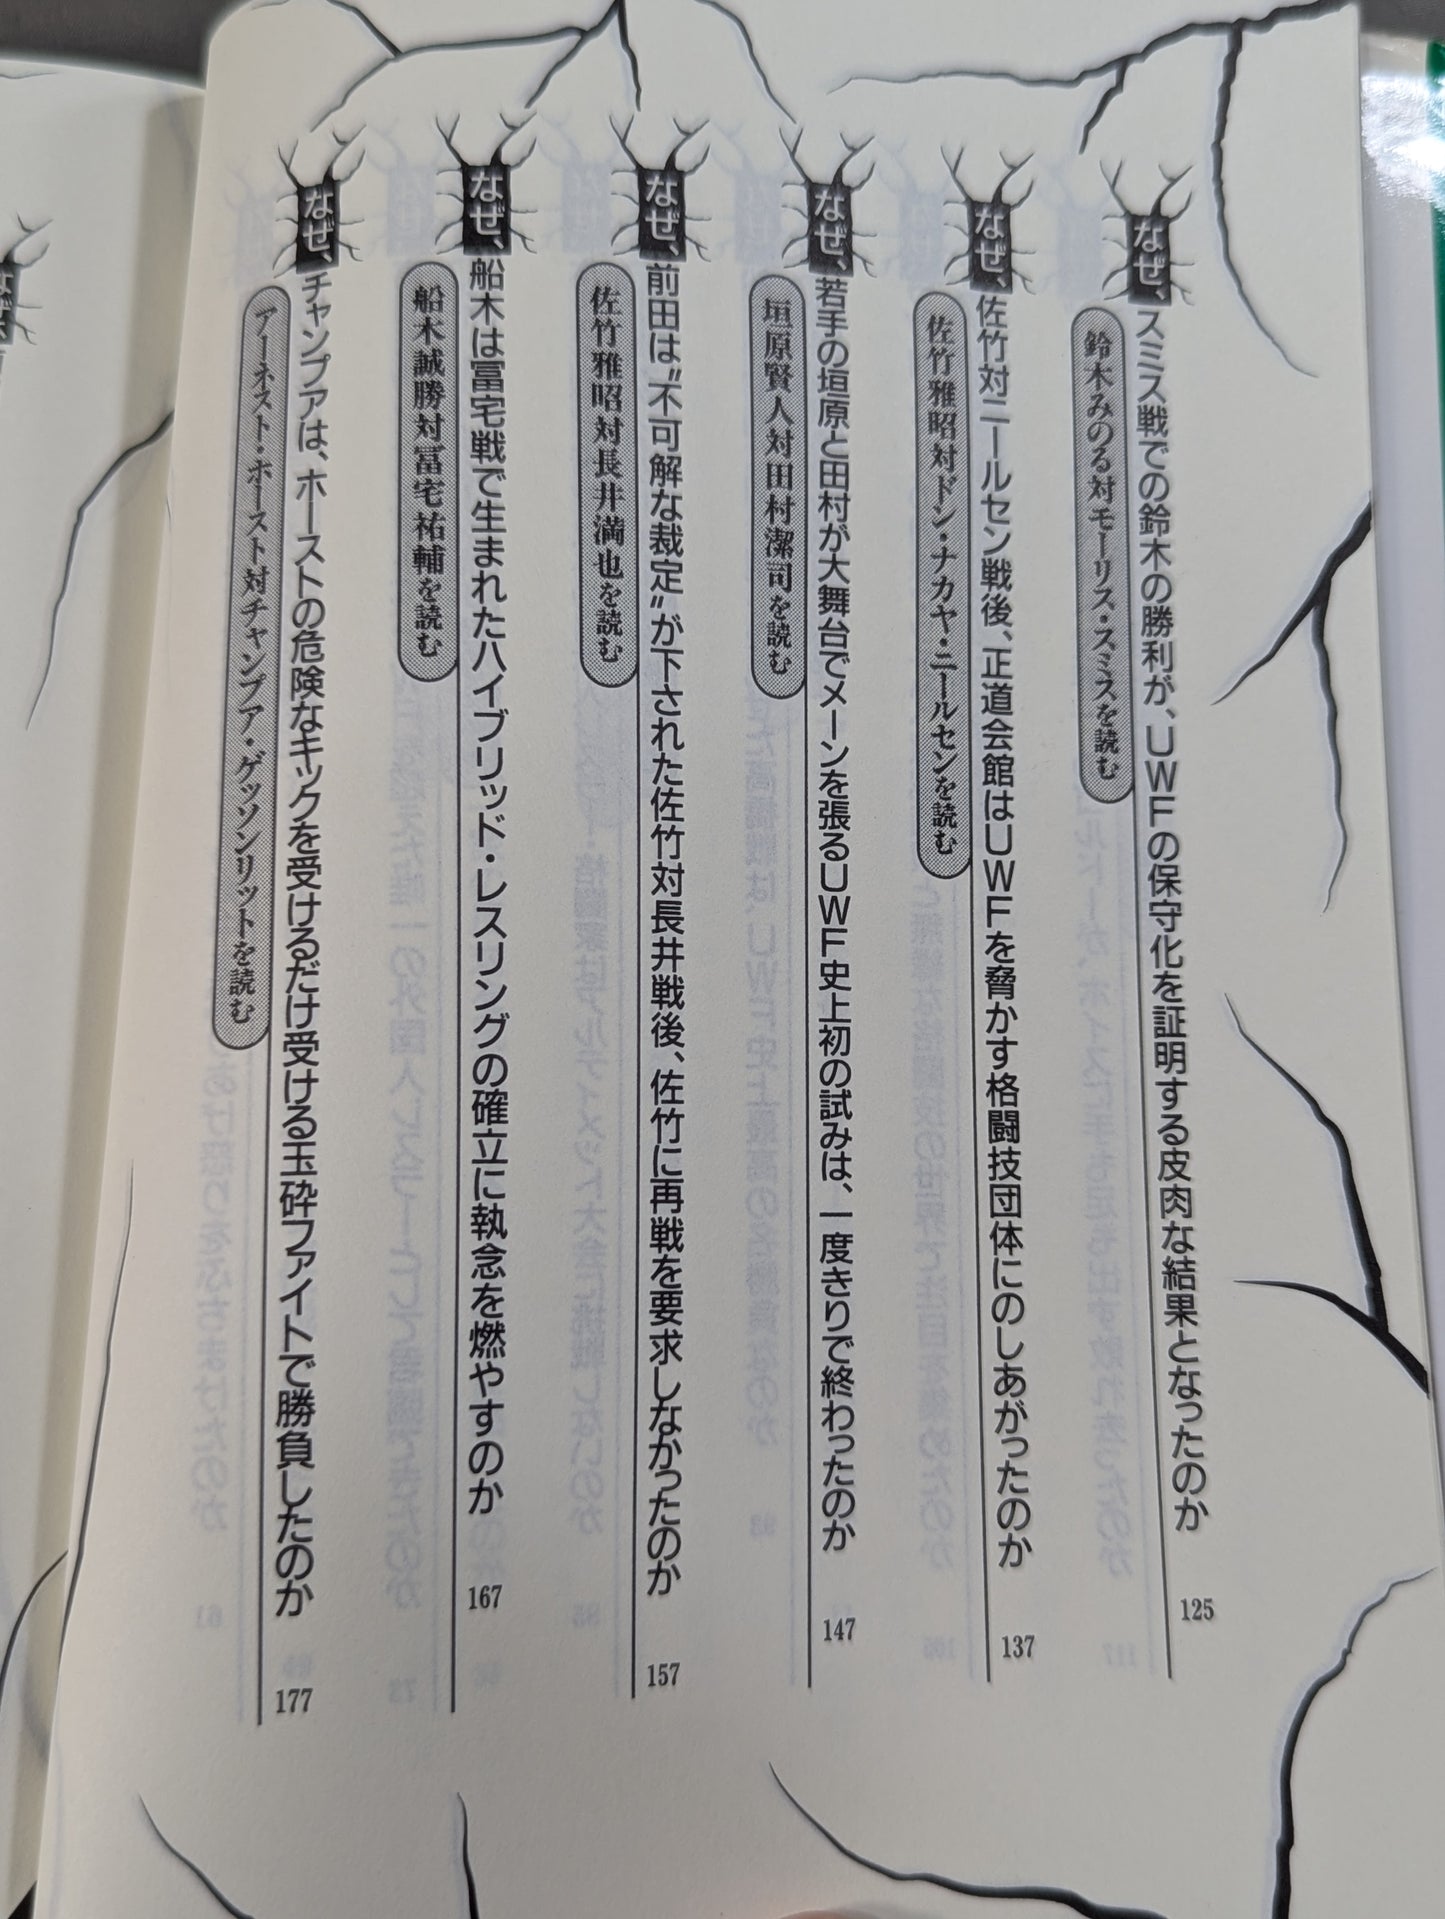 なぜ、スミス戦での鈴木の勝利が、UWFの保守化を証明する皮肉な結果となったのか 125
鈴木みのる対モーリス・スミスを読む
なぜ、佐竹対ニールセン戦後、正道会館はUWFを脅かす格闘技団体にのしあがったのか 137
佐竹雅昭対ドン・ナカヤ・ニールセンを読む
なぜ、若手の垣原と田村が大舞台でメーンを張るUWF史上初の試みは、一度きりで終わったのか 147
垣原賢人対田村潔司を読む
なぜ、前田は〝不可解な裁定〟が下された佐竹対長井戦後、佐竹に再戦を要求しなかったのか 157
佐竹雅昭対長井満也を読む
なぜ、船木は冨宅戦で生まれたハイブリッド・レスリングの確立に執念を燃やすのか 167
船木誠勝対冨宅祐輔を読む
なぜ、チャンプアは、ホーストの危険なキックを受けるだけ受ける玉砕ファイトで勝負したのか 177
アーネスト・ホースト対チャンプア・ゲッソンリットを読む